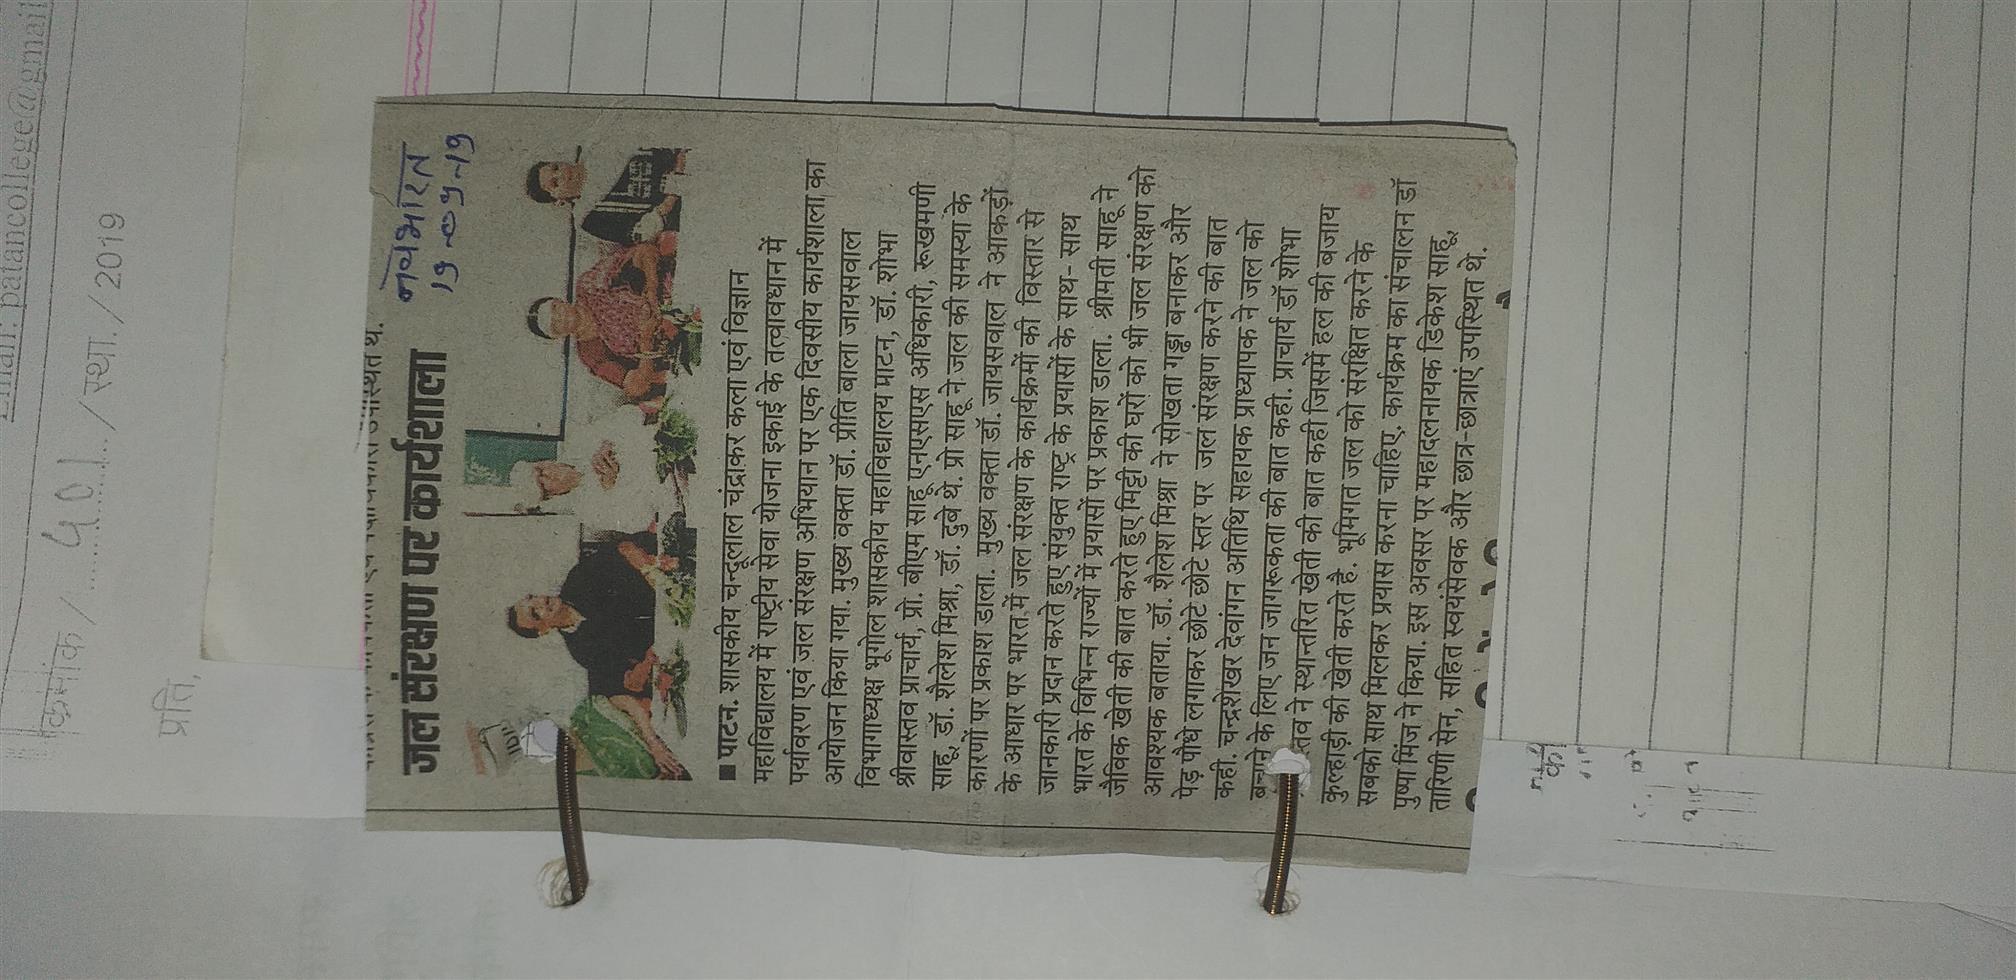 Email: patancollege@gmail
क्रमांक / 401 / स्था. / 2019
प्रति,
उपस्थित थे.
नवभारत
19-09-19
जल संरक्षण पर कार्यशाला
■ पाटन. शासकीय चन्दूलाल चंद्राकर कला एवं विज्ञान
महाविद्यालय में राष्ट्रीय सेवा योजना इकाई के तत्वावधान में
पर्यावरण एवं जल संरक्षण अभियान पर एक दिवसीय कार्यशाला का
आयोजन किया गया. मुख्य वक्ता डॉ. प्रीति बाला जायसवाल
विभागाध्यक्ष भूगोल शासकीय महाविद्यालय पाटन, डॉ. शोभा
श्रीवास्तव प्राचार्य, प्रो. बीएम साहू एनएसएस अधिकारी, रूखमणी
साहू, डॉ. शैलेश मिश्रा, डॉ. दुबे थे. प्रो साहू ने जल की समस्या के
कारणों पर प्रकाश डाला. मुख्य वक्ता डॉ. जायसवाल ने आकड़ों
के आधार पर भारत में जल संरक्षण के कार्यक्रमों की विस्तार से
जानकारी प्रदान करते हुए संयुक्त राष्ट्र के प्रयासों के साथ- साथ
भारत के विभिन्न राज्यों में प्रयासों पर प्रकाश डाला. श्रीमती साहू ने
जैविक खेती की बात करते हुए मिट्टी की घरों को भी जल संरक्षण को
आवश्यक बताया. डॉ. शैलेश मिश्रा ने सोखता गड्ढ बनाकर और
पेड़ पौधे लगाकर छोटे छोटे स्तर पर जल संरक्षण करने की बात
कही. चन्द्रशेखर देवांगन अतिथि सहायक प्राध्यापक ने जल को
बचाने के लिए जन जागरूकता की बात कही. प्राचार्य डॉ शोभा
स्तव ने स्थानान्तरित खेती की बात कही जिसमें हल की बजाय
कुल्हाड़ी की खेती करते है. भूमिगत जल को संरक्षित करने के
सबको साथ मिलकर प्रयास करना चाहिए. कार्यक्रम का संचालन डॉ
पुष्पा मिंज ने किया. इस अवसर पर महादलनायक डिकेश साहू,
तारिणी सेन, सहित स्वयंसेवक और छात्र-छात्राएं उपस्थित थे.